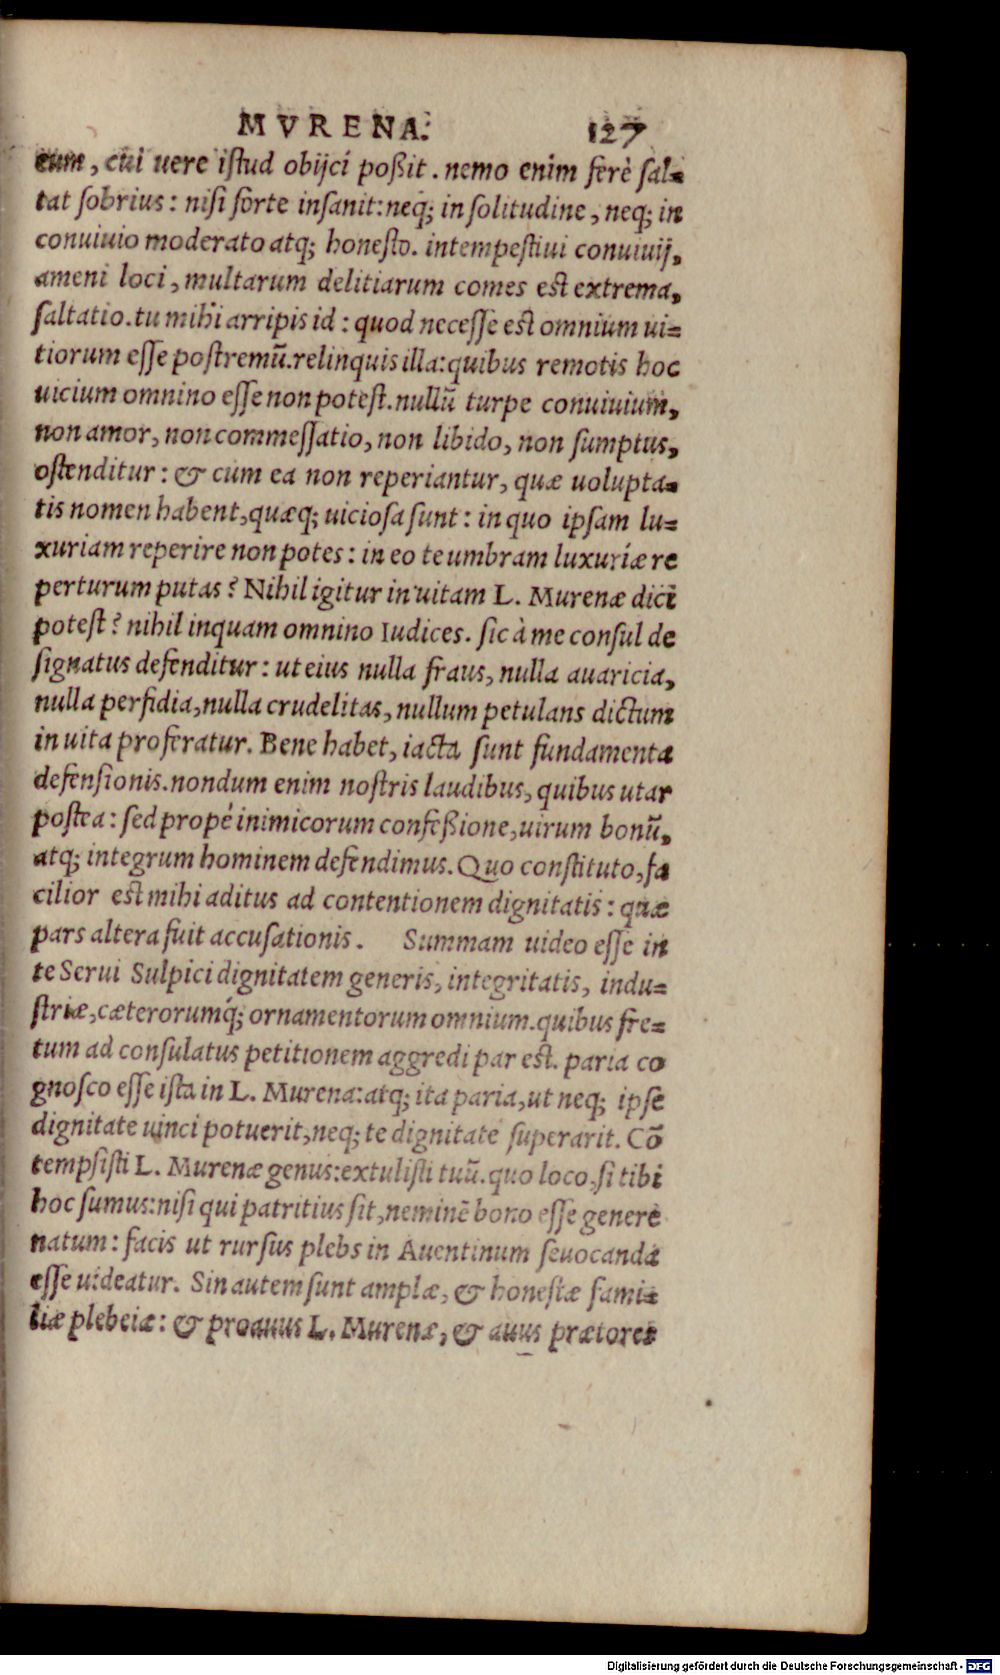 MVRENA. 127
eum, cui uere istud obijci poßit. nemo enim ferè sal=
tat sobrius: nisi forte insanit: neq; in solitudine, neq; in
conuiuio moderato atq; honesto. intempestiui conuiuij,
ameni loci, multarum delitiarum comes est extrema,
saltatio. tu mihi arripis id: quod necesse est omnium ui=
tiorum esse postremū. relinquis illa: quibus remotis hoc
uicium omnino esse non potest. nullū turpe conuiuium,
non amor, non commessatio, non libido, non sumptus,
ostenditur: & cum ea non reperiantur, quæ uolupta=
tis nomen habent, quæq; uiciosa sunt: in quo ipsam lu=
xuriam reperire non potes: in eo te umbram luxuriæ re
perturum putas? Nihil igitur in uitam L. Murenæ dici
potest? nihil inquam omnino Iudices. sic à me consul de
signatus defenditur: ut eius nulla fraus, nulla auaricia,
nulla perfidia, nulla crudelitas, nullum petulans dictum
in uita proferatur. Bene habet, iacta sunt fundamenta
defensionis. nondum enim nostris laudibus, quibus utar
postea: sed propé inimicorum confeßione, uirum bonū,
atq; integrum hominem defendimus. Quo constituto, fa
cilior est mihi aditus ad contentionem dignitatis: quæ
pars altera fuit accusationis. Summam uideo esse in
te Serui Sulpici dignitatem generis, integritatis, indu=
striæ, cæterorumq́; ornamentorum omnium. quibus fre=
tum ad consulatus petitionem aggredi par est. paria co
gnosco esse ista in L. Murena: atq; ita paria, ut neq; ipse
dignitate uinci potuerit, neq; te dignitate superarit. Cō
tempsisti L. Murenæ genus: extulisti tuū. quo loco, si tibi
hoc sumus: nisi qui patritius sit, neminē bono esse genere
natum: facis ut rursus plebs in Auentinum seuocanda
esse uideatur. Sin autem sunt amplæ, & honestæ fami=
liæ plebeiæ: & proauus L. Murenæ, & auus prætores
Digitalisierung gefördert durch die Deutsche Forschungsgemeinschaft - DFG